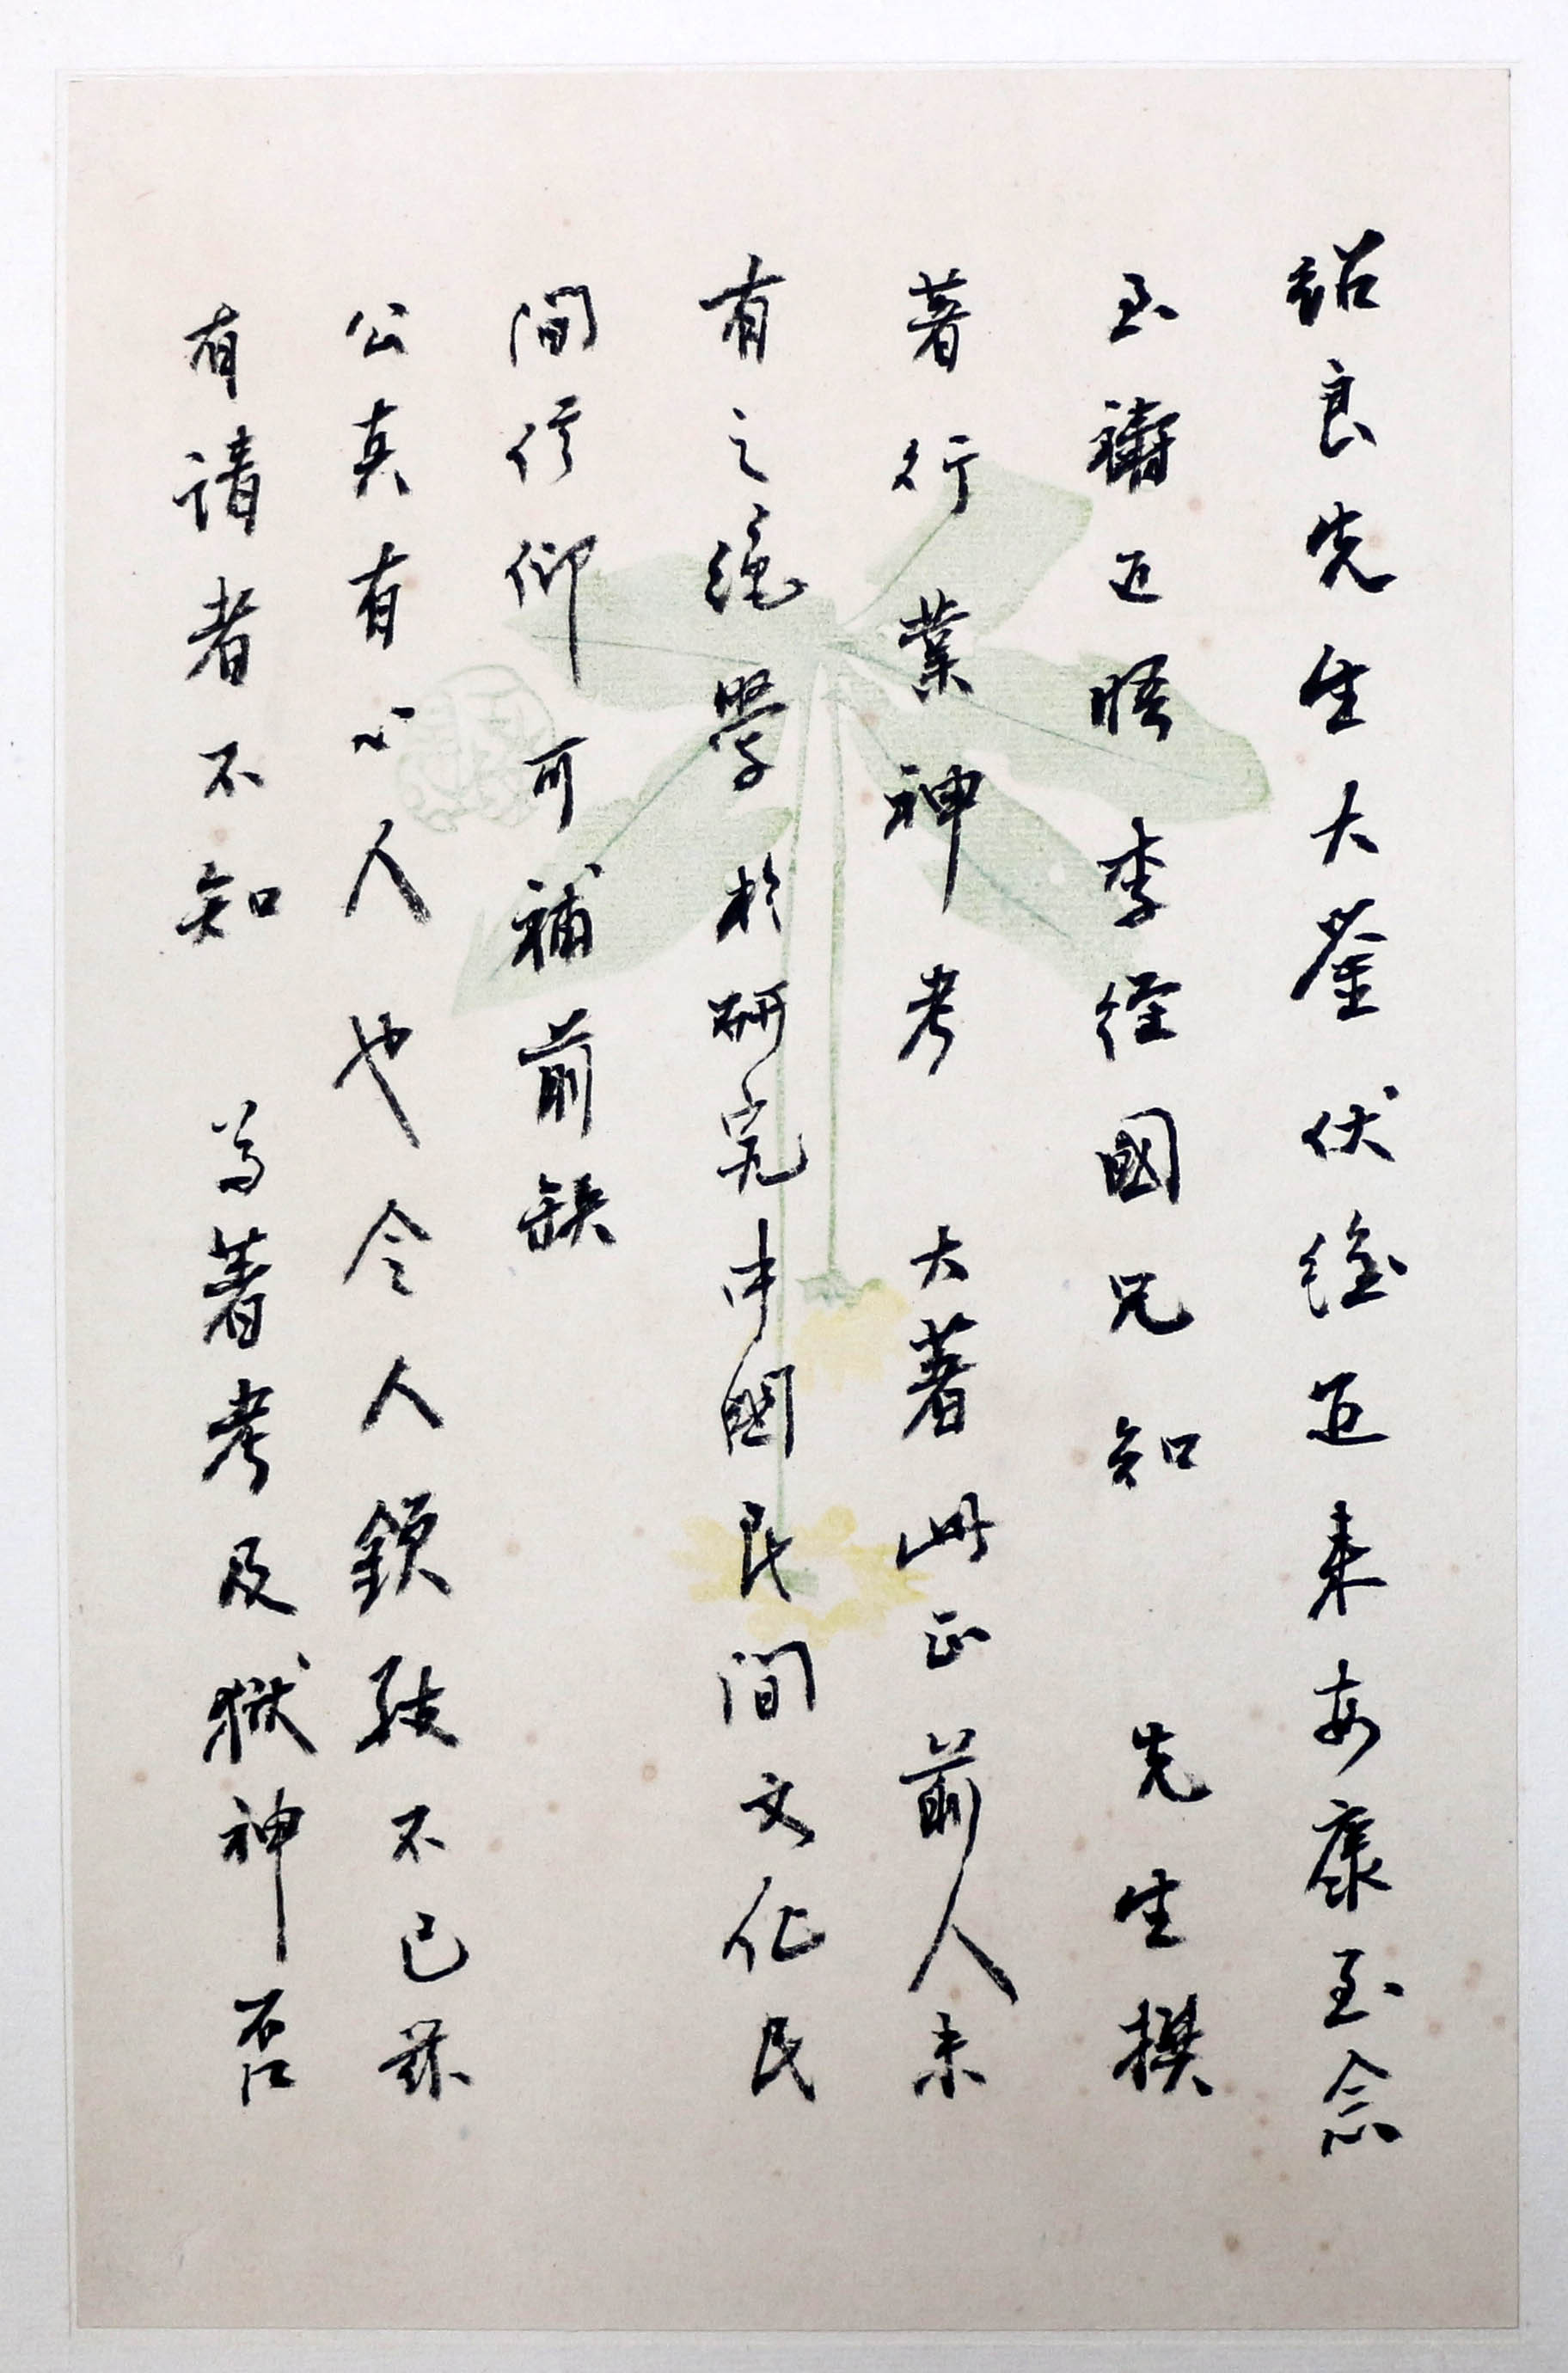 紹良先生大鉴伏維近来安康至念
至禱近晤李經國兄知先生撰
著行業神考大著此正前人未
有之絕學於研究中國民間文化民
間信仰可補前缺
公真有心人也令人欽敬不已茲
有請者不知尊著考及獄神否